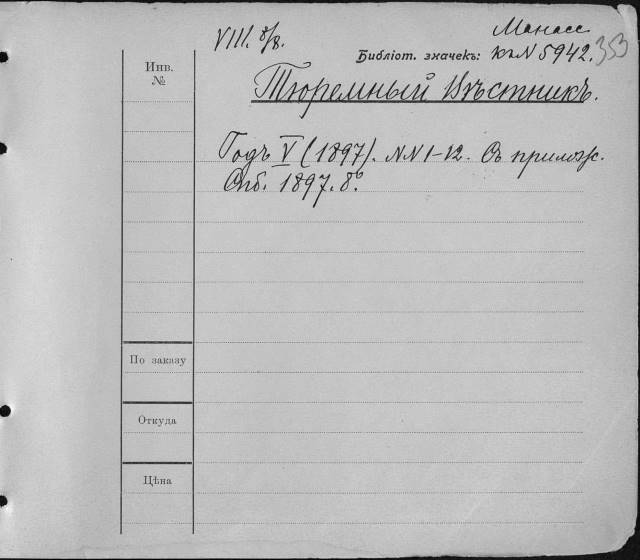 VIII. 8/8.
Манасс
Библіот. значекъ: къ N 5942.
353
Инв.
№
Тюремный Вѣстникъ.
Годъ V (1897). NN 1-12. Съ прилож.
Спб. 1897. 8º.
По заказу
Откуда
Цѣна